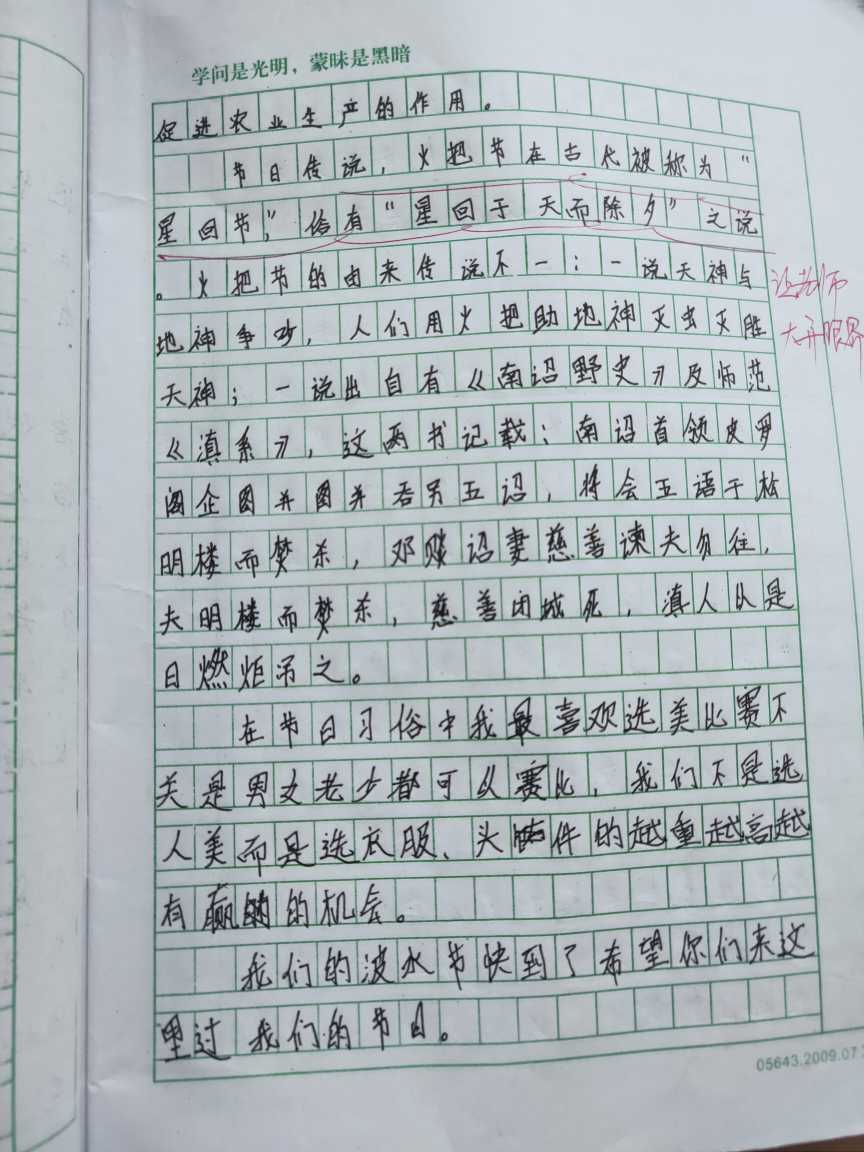 学问是光明，蒙昧是黑暗
促进农业生产的作用。
节日传说，火把节在古代被称为“
星回节”，俗有“星回于天而除夕”之说
。火把节的由来传说不一：一说天神与
地神争吵，人们用火把助地神灭虫灭胜
天神；一说出自有《南诏野史》及师范
《滇系》，这两书记载：南诏首领皮罗
阁企图并图并吞另五诏，将会五语于松
明楼而焚杀，邓赕诏妻慈善谏夫勿往，
夫明楼而焚杀，慈善闭城死，滇人以是
日燃炬吊之。
在节日习俗中我最喜欢选美比赛不
关是男女老少都可以赛比，我们不是选
人美而是选衣服、头件的越重越高越
有赢的机会。
我们的波水节快到了希望你们来这
里过我们的节日。
让老师
大开眼界
05643.2009.07